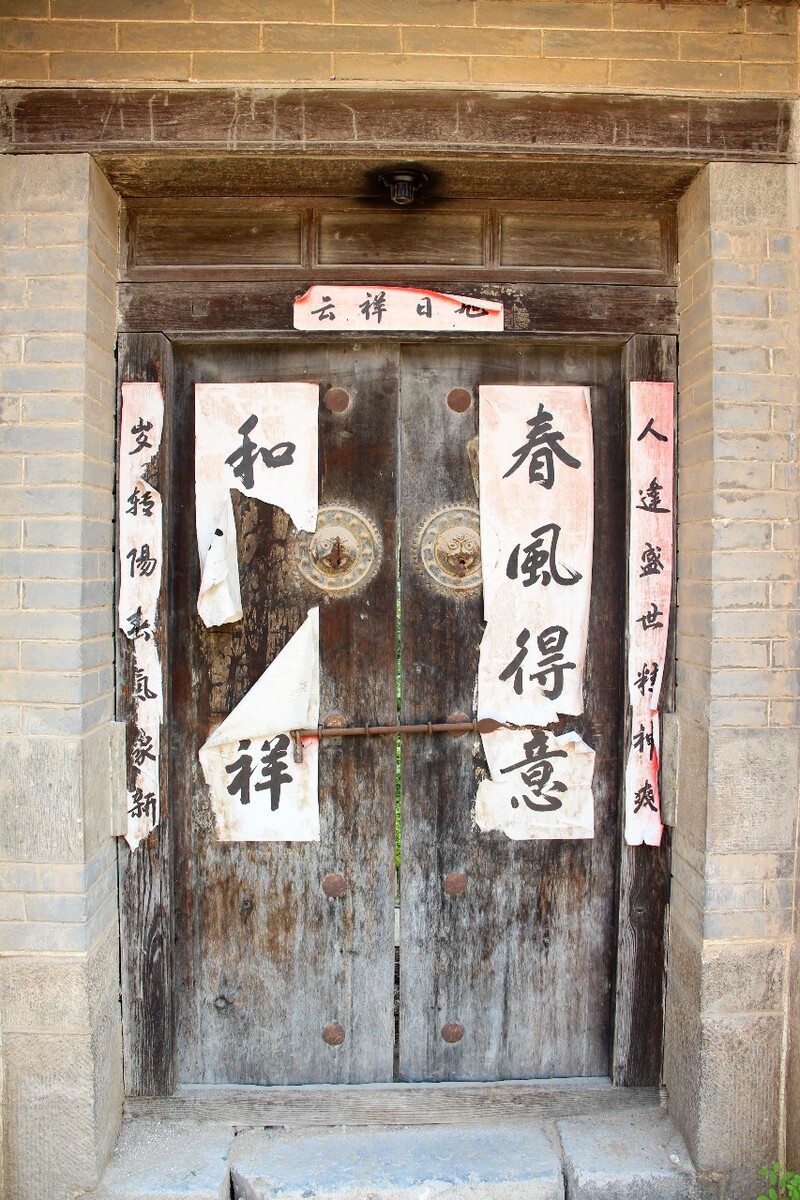 旭日祥云
人逢盛世精神爽
春風得意
和
祥
岁轉陽春氣象新